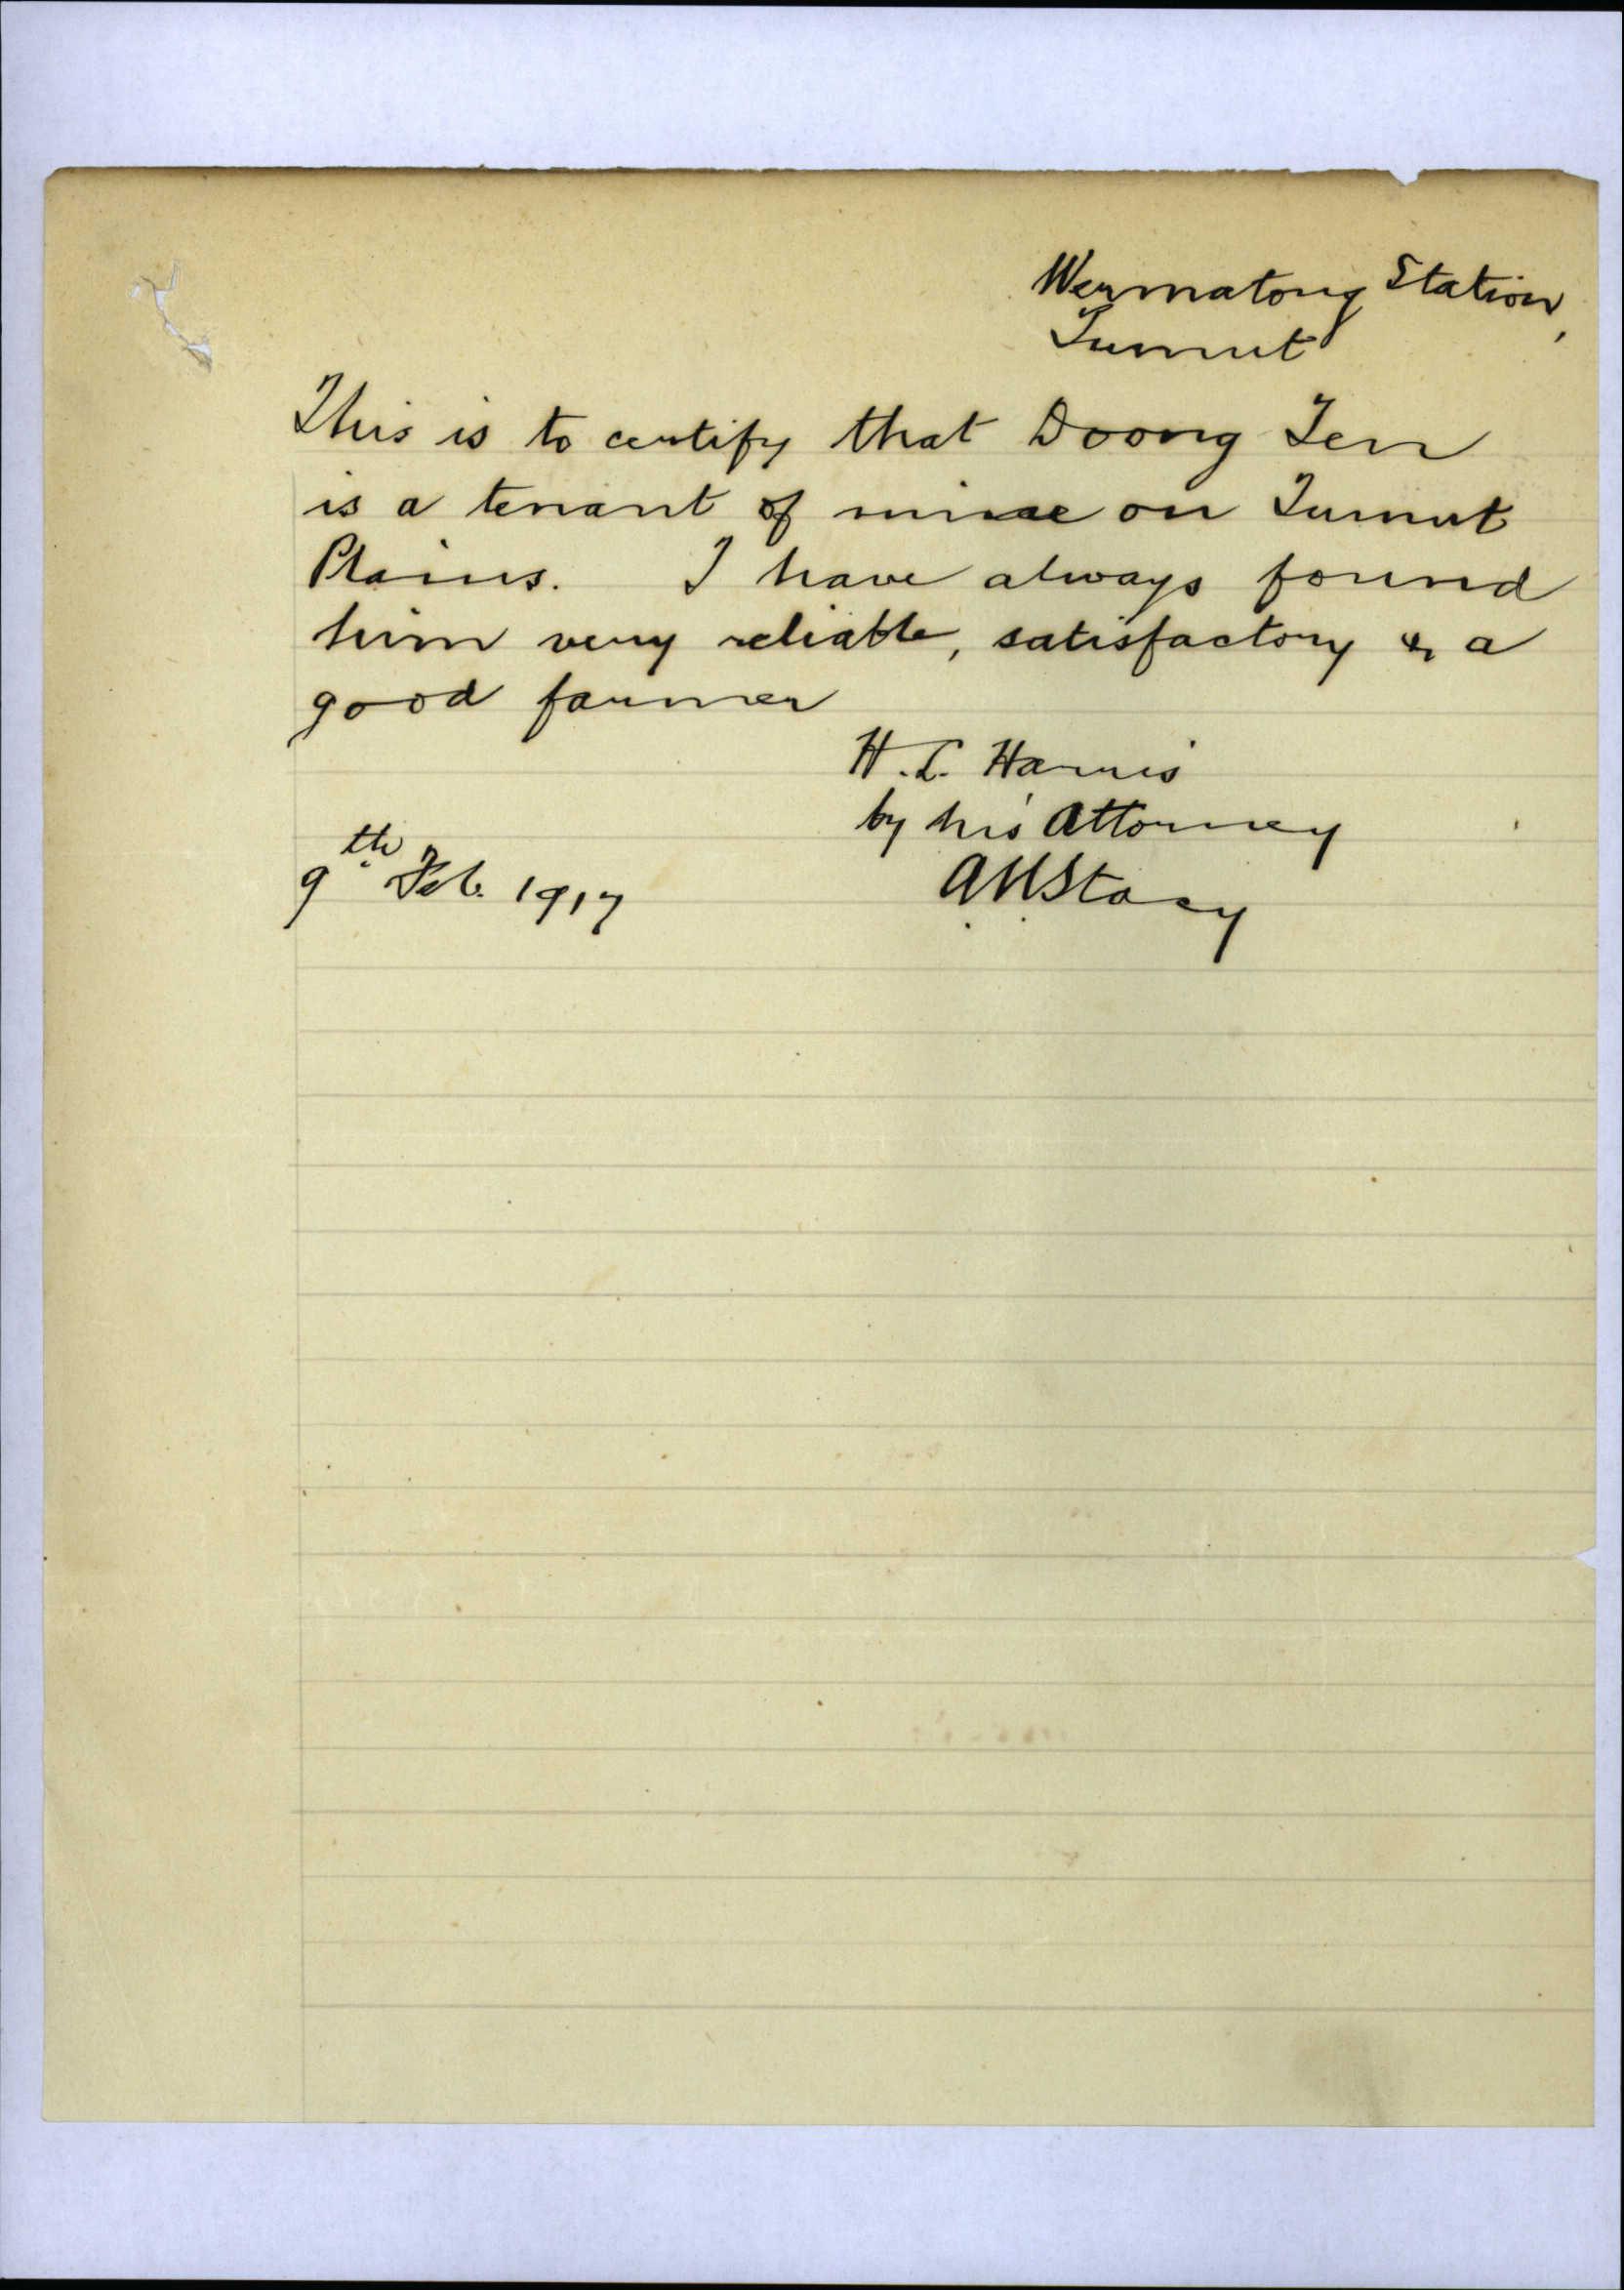 Wermatong Station,
Tumut
This is to certify that Doong Ten
is a tenant of mine on Tumut
Plains. I have always found
him very reliable, satisfactory & a
good farmer
H. L. Harris
by his Attorney
AHStacy
9th Feb. 1917